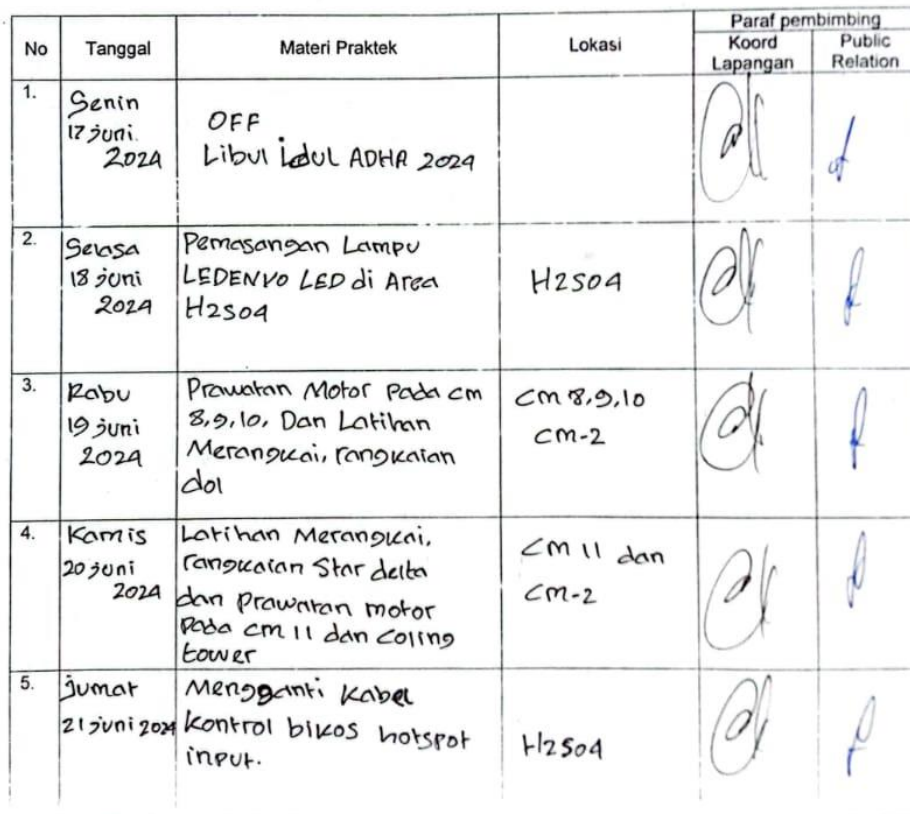 Paraf pembimbing
No Tanggal Materi Praktek Lokasi Koord Lapangan Public Relation
1. Senin
17 juni.
2024
OFF
Libul idul ADHA 2024
2. Selasa
18 juni
2024
Pemasangan Lampu
LEDENVO LED di Area
H2SO4
H2SO4
3. Rabu
19 juni
2024
Prawatan Motor Pada cm
8,9,10, Dan Latihan
Merangkai, rangkaian
dol
cm 8,9,10
cm-2
4. Kamis
20 juni
2024
Latihan Merangkai,
rangkaian Star delta
dan Prawatan motor
Pada cm 11 dan coling
tower
cm 11 dan
cm-2
5. jumat
21 juni 2024
Mengganti Kabel
kontrol bikos hotspot
input.
H2SO4